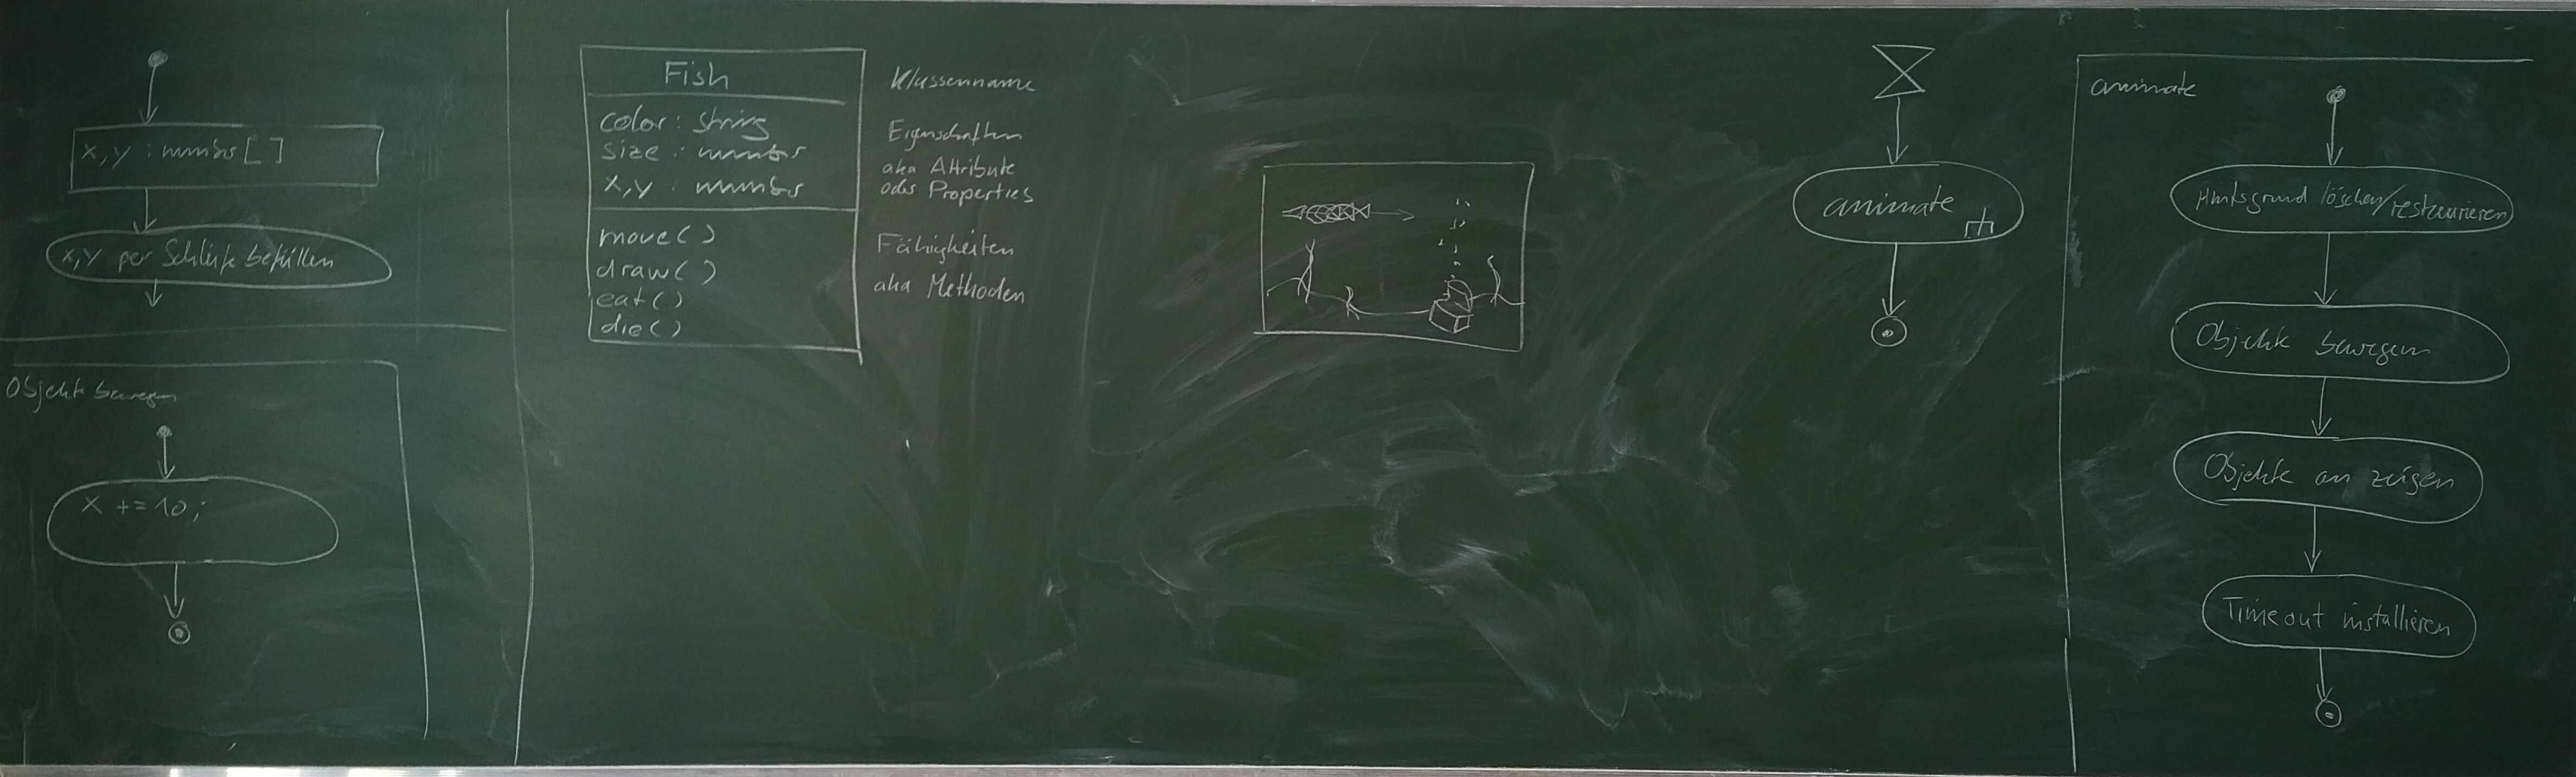 x,y : number[]
x,y per Schleife befüllen
Objekte bewegen
x += 10;
Fish
color: string
size : number
x,y : number
move()
draw()
eat()
die()
Klassenname
Eigenschaften
aka Attribute
oder Properties
Fähigkeiten
aka Methoden
animate
animate
Hintergrund löschen/restaurieren
Objekte bewegen
Objekte an zeigen
Timeout installieren